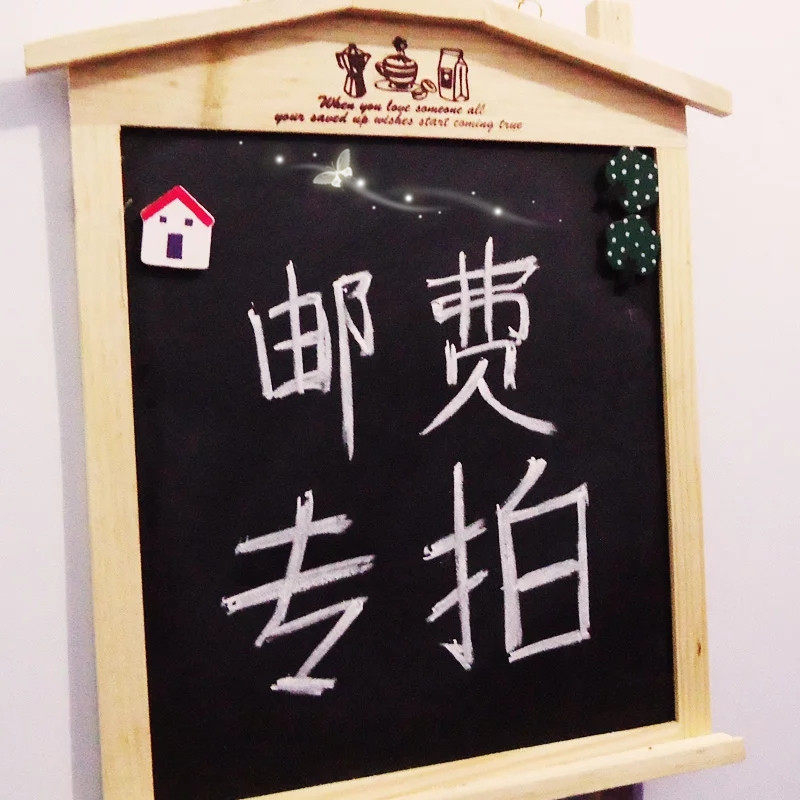 When you love someone all
your saved up wishes start coming true
邮费
专拍